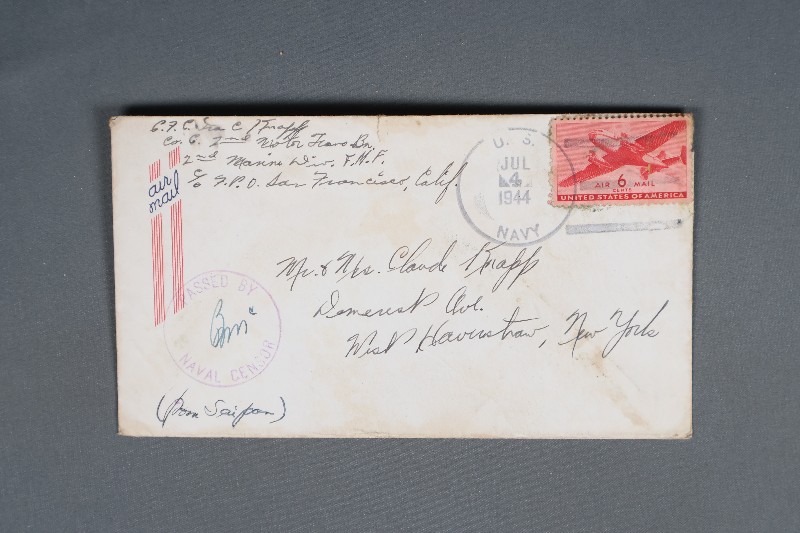 P.F.C. Ira C Knapp
Co. C. 2nd Motor Trans Bn.
2nd Marine Div. F.M.F.
c/o F.P.O. San Francisco, Calif.
air
mail
U. S.
JUL
4
1944
NAVY
AIR 6 MAIL
CENTS
UNITED STATES OF AMERICA
Mr. & Mrs. Claude Knapp
Demerest Ave.
West Haverstraw, New York
PASSED BY
NAVAL CENSOR
(From Saipan)